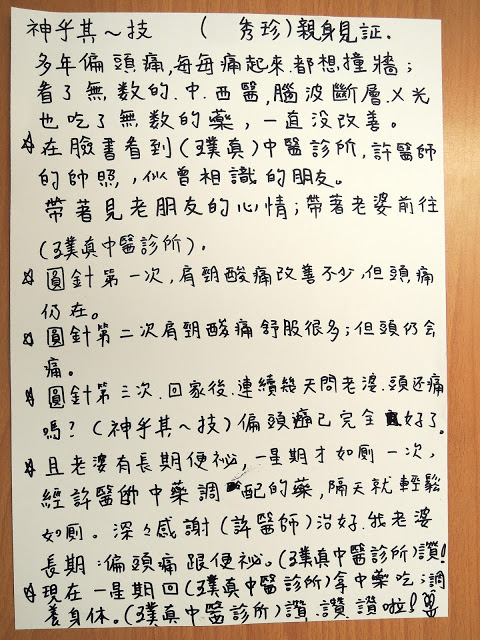 神乎其~技 ( 秀珍)親身見証.
多年偏頭痛,每每痛起來.都想撞牆;
看了無数的.中.西醫,腦波斷層.X光
也吃了無数的藥,一直沒改善。
☆在臉書看到(璞真)中醫診所,許醫師
的帥照,似曾相識的朋友。
帶著見老朋友的心情;帶著老婆前往
(璞真中醫診所).
☆圓針第一次,肩頸酸痛改善不少,但頭痛
仍在。
☆圓針第二次肩頸酸痛舒服很多;但頭仍会
痛。
☆圓針第三次.回家後.連續幾天問老婆.頭還痛
嗎?(神乎其~技)偏頭痛已完全好了。
☆且老婆有長期便祕,一星期才如厠一次,
經許醫師中藥調配的藥,隔天就輕鬆
如厠。深々感謝(許醫師)治好.我老婆
長期:偏頭痛跟便祕。(璞真中醫診所)讚!
☆現在一星期回(璞真中醫診所)拿中藥吃;調
養身体。(璞真中醫診所)讚.讚.讚啦!